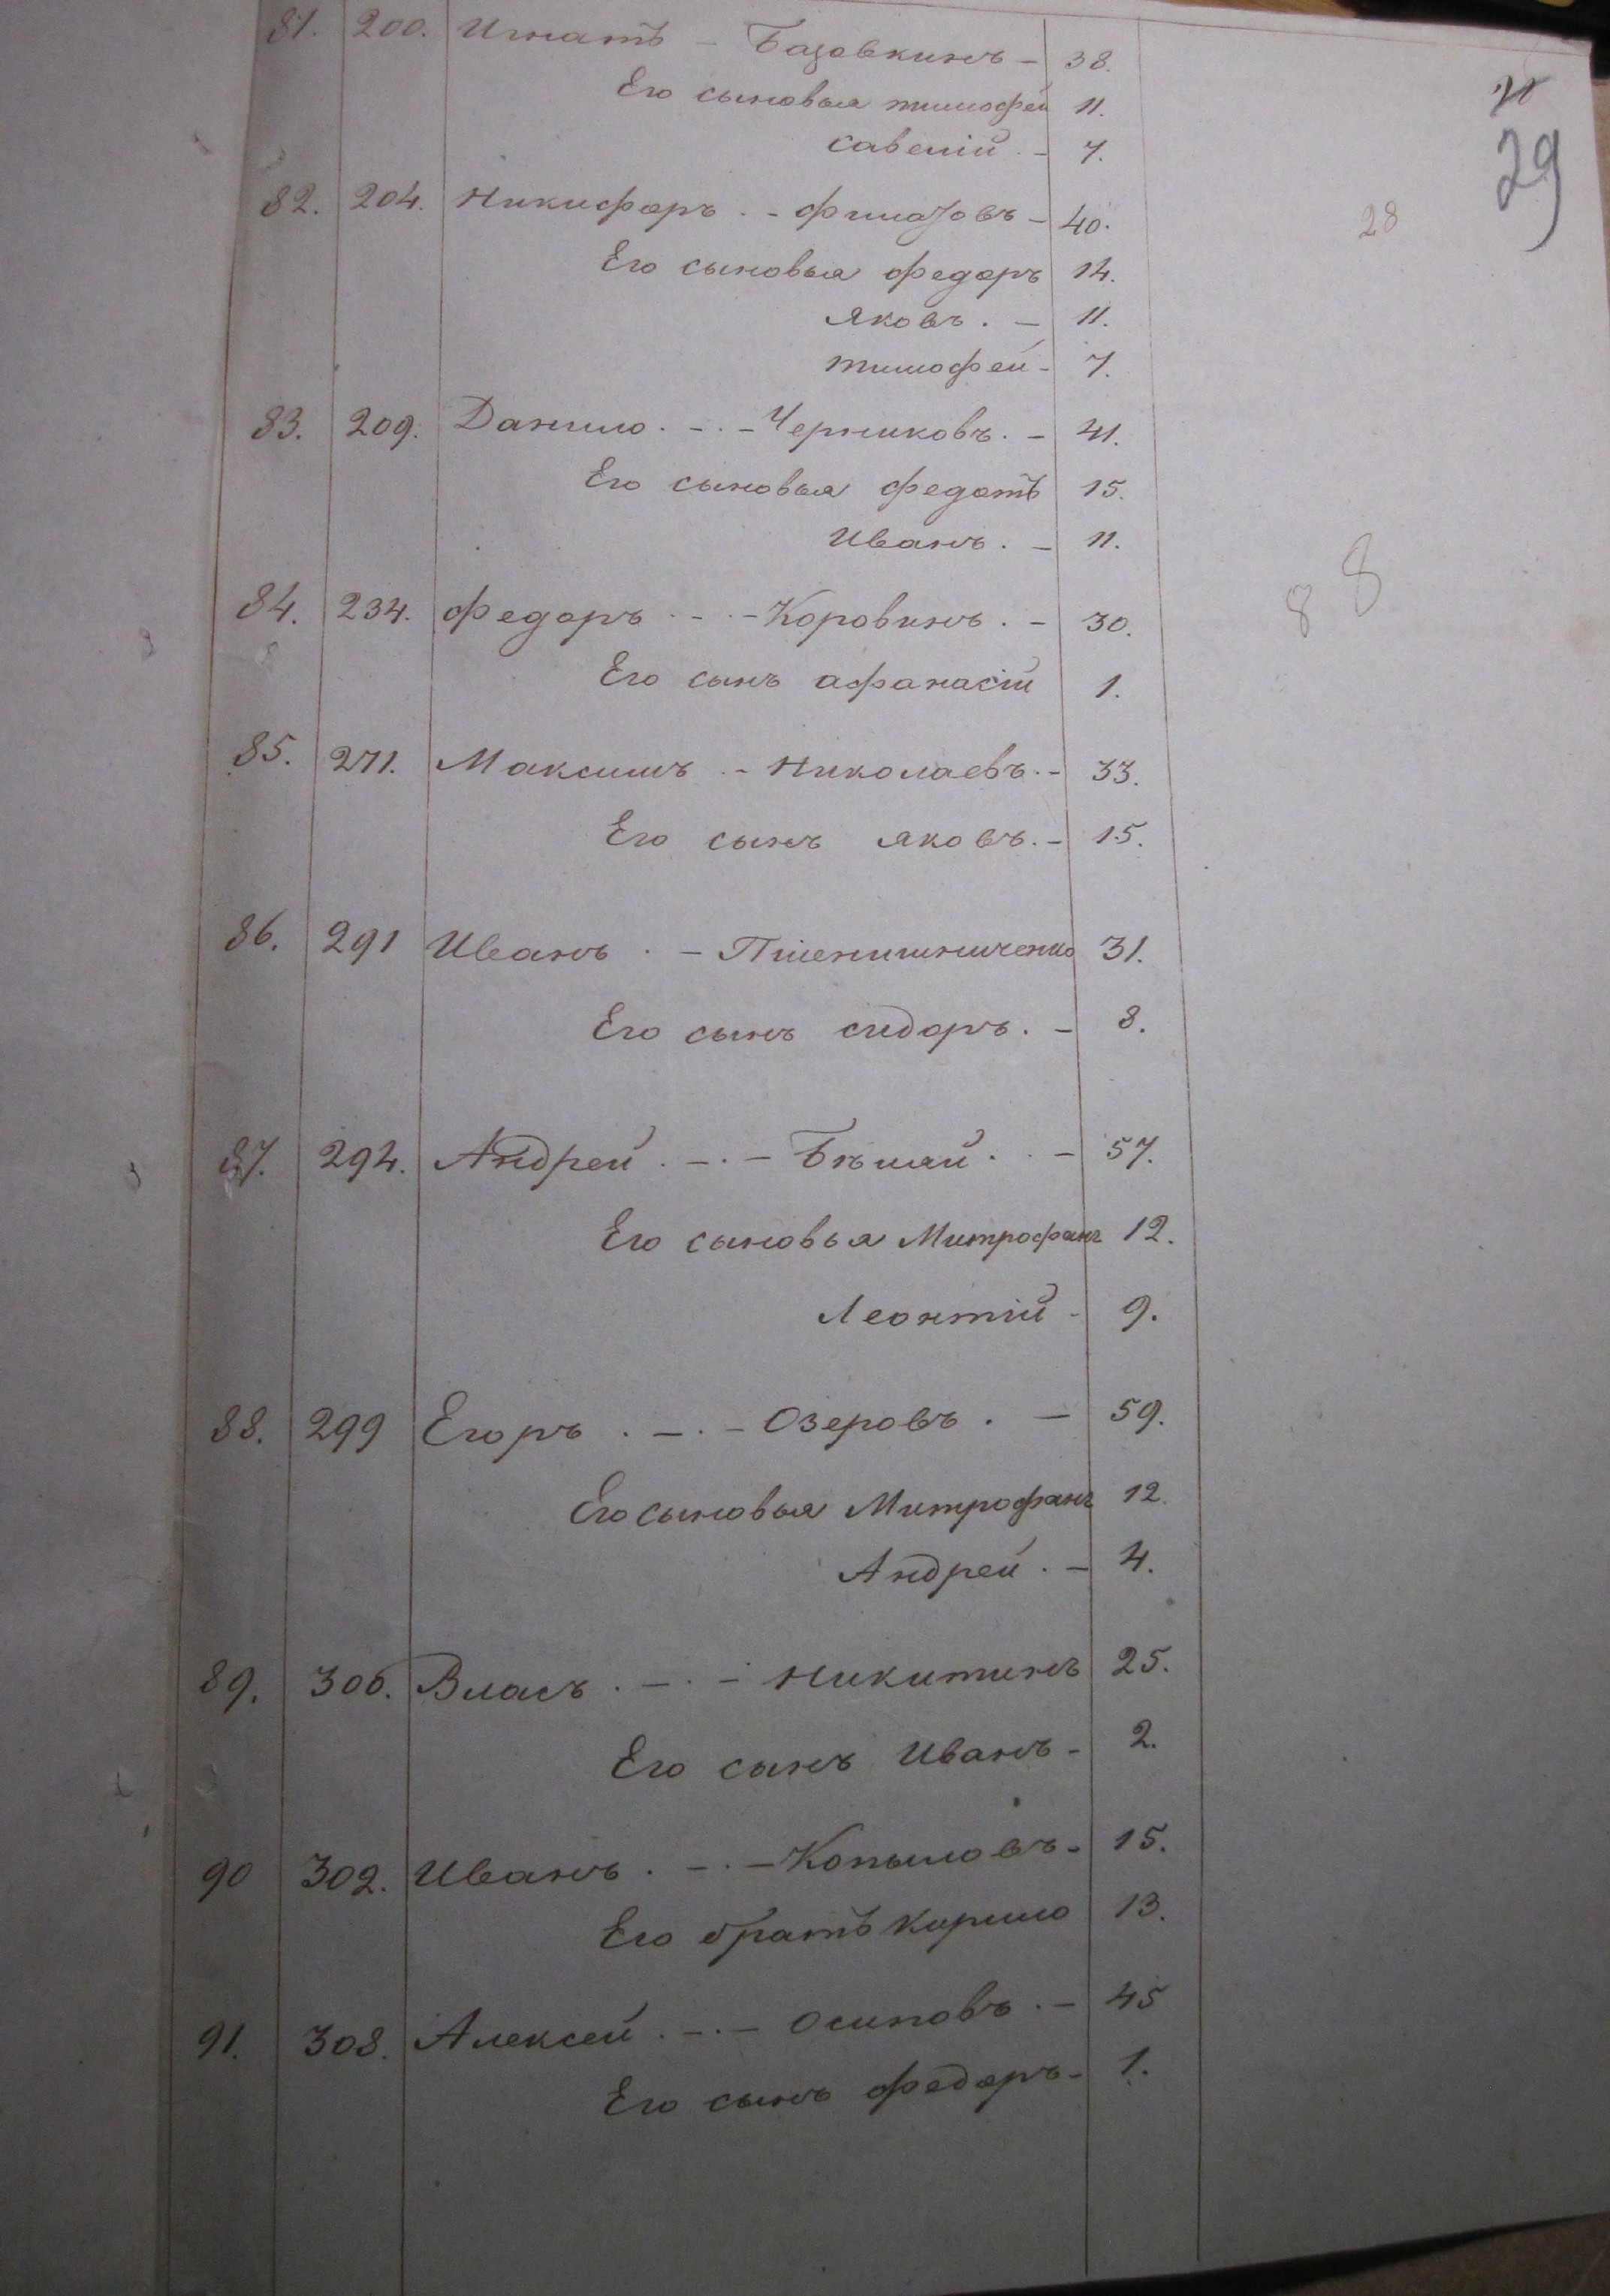 81. 200. Игнатъ - Базовкинъ - 38.
Его сыновья тимофей 11.
савелій - 7.
29
82. 204. Никифоръ - филатовъ - 40.
28
Его сыновья федоръ 14.
яковъ - 11.
тимофей - 7.
83. 209. Данило - Черниковъ - 41.
Его сыновья федотъ 15.
Иванъ - 11.
8 8
84. 234. федоръ - Коровинъ - 30.
Его сынъ афанасій 1.
85. 271. Максимъ - Николаевъ - 33.
Его сынъ яковъ - 15.
86. 291 Иванъ - Пшенишниченко 31.
Его сынъ сидоръ - 8.
87. 294. Андрей - Бѣлай - 57.
Его сыновья Митрофанъ 12.
Леонтій - 9.
88. 299 Егоръ - Озеровъ - 59.
Его сыновья Митрофанъ 12.
Андрей - 4.
89. 300. Власъ - Никитинъ 25.
Его сынъ Иванъ - 2.
90 302. Иванъ - Копыловъ - 15.
Его братъ Кирило 13.
91. 308. Алексей - осиповъ - 45
Его сынъ федоръ - 1.